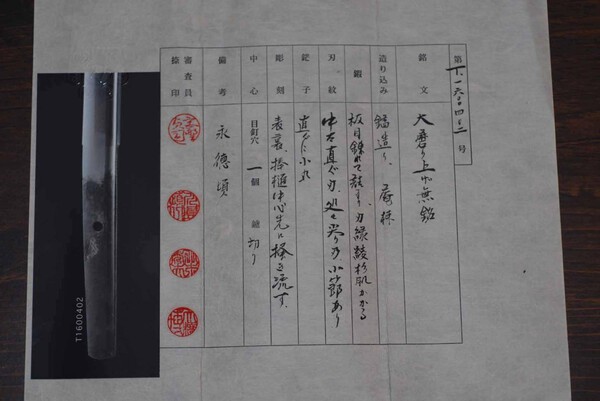 第T一六〇〇四〇二号
銘文 大磨り上げ無銘
造り込み 鎬造り、庵棟
鍛 板目錬れて詰まり、刃縁綾杉肌かかる
刃紋 中直ぐ刃、処々小節あり
鋩子 直ぐに小丸
彫刻 表裏、棒樋中心先に掻き流す、
中心 目釘穴 一個 鑢 切り
備考 永徳頃
審査員捺印
T1600402